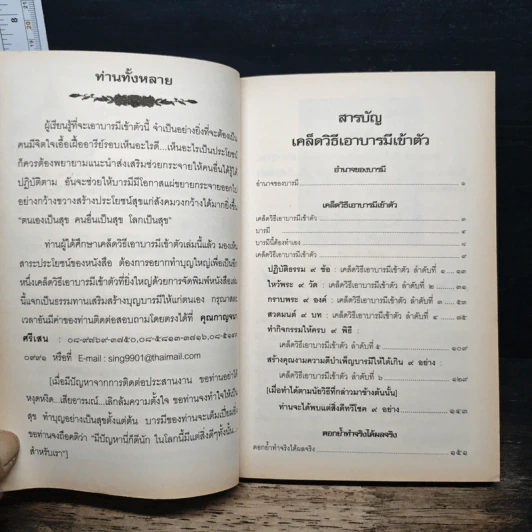 ท่านทั้งหลาย
ผู้เรียนรู้ที่จะเอาบารมีเข้าตัวนี้ จำเป็นอย่างยิ่งที่จะต้องเป็น
คนมีจิตใจเอื้อเฟื้ออารีย์รอบเห็นอะไรดี...เห็นอะไรเป็นประโยชน์
ก็ควรต้องพยายามแนะนำส่งเสริมช่วยกระจายให้คนอื่นได้รู้ได้
ปฏิบัติตาม อันจะช่วยให้บารมีมีโอกาสแผ่ขยายกระจายออกไป
อย่างกว้างขวางสร้างประโยชน์สุขแก่สังคมวงกว้างได้มากยิ่งขึ้น
"ตนเองเป็นสุข คนอื่นเป็นสุข โลกเป็นสุข"
ท่านผู้ได้ศึกษาเคล็ดวิธีเอาบารมีเข้าตัวเล่มนี้แล้ว มองเห็น
สาระประโยชน์ของหนังสือ ต้องการอยากทำบุญใหญ่เพื่อเป็นอีก
หนึ่งเคล็ดวิธีเอาบารมีเข้าตัวที่ยิ่งใหญ่ด้วยการจัดพิมพ์หนังสือเล่ม
นี้แจกเป็นธรรมทานเสริมสร้างบุญบารมีให้แก่ตนเอง กรุณาสละ
เวลาอันมีค่าของท่านติดต่อสอบถามโดยตรงได้ที่ คุณกาญจนา
ศรีเสน : ๐๘-๙๗๖๙-๓๗๕๐, ๐๘-๕๘๑๓-๓๗๑๖, ๐๘-๕๑๑
๐๙๙๑ หรือที่ E-mail : sing9901@thaimail.com
[เมื่อมีปัญหาจากการติดต่อประสานงาน ขอท่านอย่าได้
หงุดหงิด...เสียอารมณ์...เลิกล้มความตั้งใจ ขอท่านจงทำใจให้เป็น
สุข ทำบุญอย่างเป็นสุขตั้งแต่ต้น บารมีของท่านจะเต็มเปี่ยม
ขอท่านจงถือคติว่า "มีปัญหานี่ก็ดีนัก ในโลกนี้มีแต่สิ่งดีๆทั้งนั้น
สำหรับเรา"]
สารบัญ
เคล็ดวิธีเอาบารมีเข้าตัว
อำนาจของบารมี
อำนาจของบารมี ๑
เคล็ดวิธีเอาบารมีเข้าตัว
เคล็ดวิธีเอาบารมีเข้าตัว ๓
บารมี ๕
บารมีนี้ต้องทำเอง ๘
เคล็ดวิธีเอาบารมีเข้าตัว ๙
ปฏิบัติธรรม ๙ ข้อ : เคล็ดวิธีเอาบารมีเข้าตัว ลำดับที่ ๑ .... ๑๓
ไหว้พระ ๙ วัด : เคล็ดวิธีเอาบารมีเข้าตัว ลำดับที่ ๒ ........ ๓๑
กราบพระ ๙ องค์ : เคล็ดวิธีเอาบารมีเข้าตัว ลำดับที่ ๓ .... ๕๓
สวดมนต์ ๙ บท : เคล็ดวิธีเอาบารมีเข้าตัว ลำดับที่ ๔ ..... ๗๕
ทำกิจกรรมให้ครบ ๙ พิธี :
เคล็ดวิธีเอาบารมีเข้าตัว ลำดับที่ ๕ ๑๐๙
สร้างคุณงามความดีบำเพ็ญบารมีให้ได้เกิน ๙ อย่าง :
เคล็ดวิธีเอาบารมีเข้าตัว ลำดับที่ ๖ ๑๒๙
[เมื่อทำได้ตามนัยวิธีที่กล่าวมาข้างต้นนั้น]
ท่านจะได้พบแต่สิ่งดีทวีโชค ๙ อย่าง ๑๔๓
ตอกย้ำทำจริงได้ผลจริง
ตอกย้ำทำจริงได้ผลจริง ๑๕๑